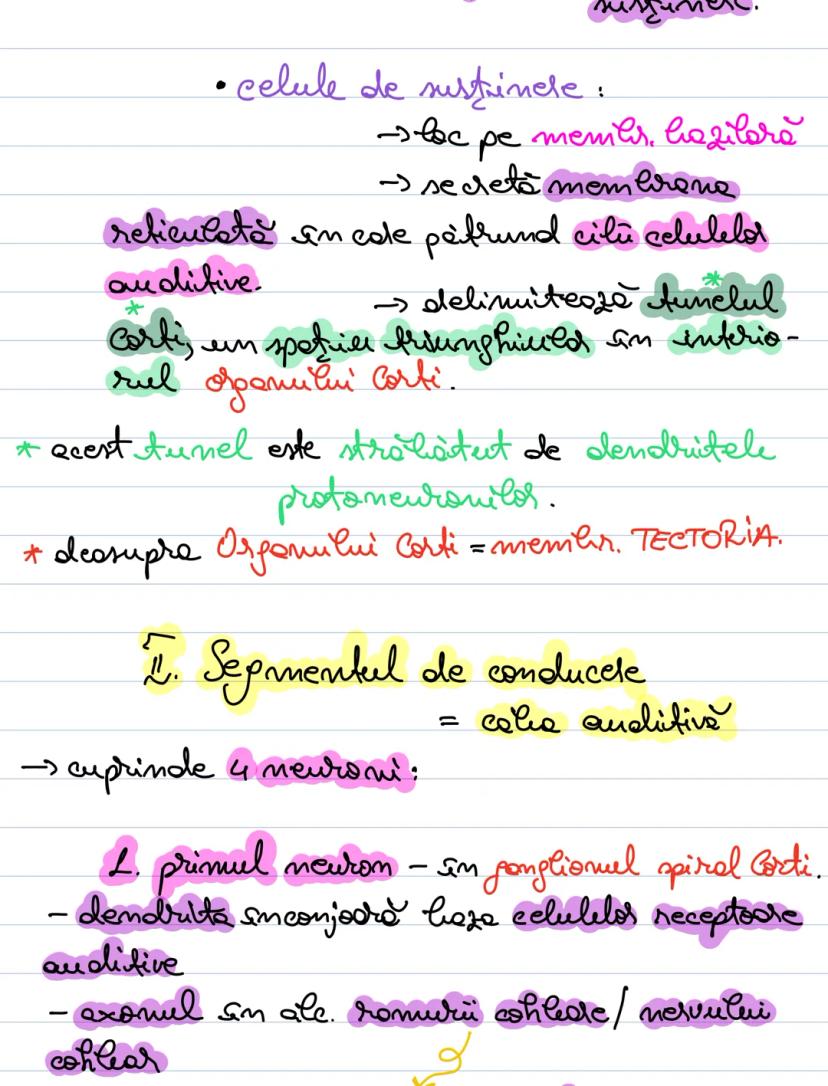 susținere.
• celule de susținere :
→ loc pe membr. bazilară
→ secretă membrana
reticulată în care pătrund cilii celulelor
auditive.
→ delimitează tunelul *
* Corti, un spațiu triunghiular în interio-
rul organului Corti.
* acest tunel este străbătut de dendritele
protoneuronilor.
* deasupra Organului Corti = membr. TECTORIA.
II. Segmentul de conducere
= calea auditivă
→ cuprinde 4 neuroni:
1. primul neuron – în ganglionul spiral Corti.
- dendrita înconjoară baza celulelor receptoare
auditive
- axonul în alc. ramurii cohleare / nervului
cohlear